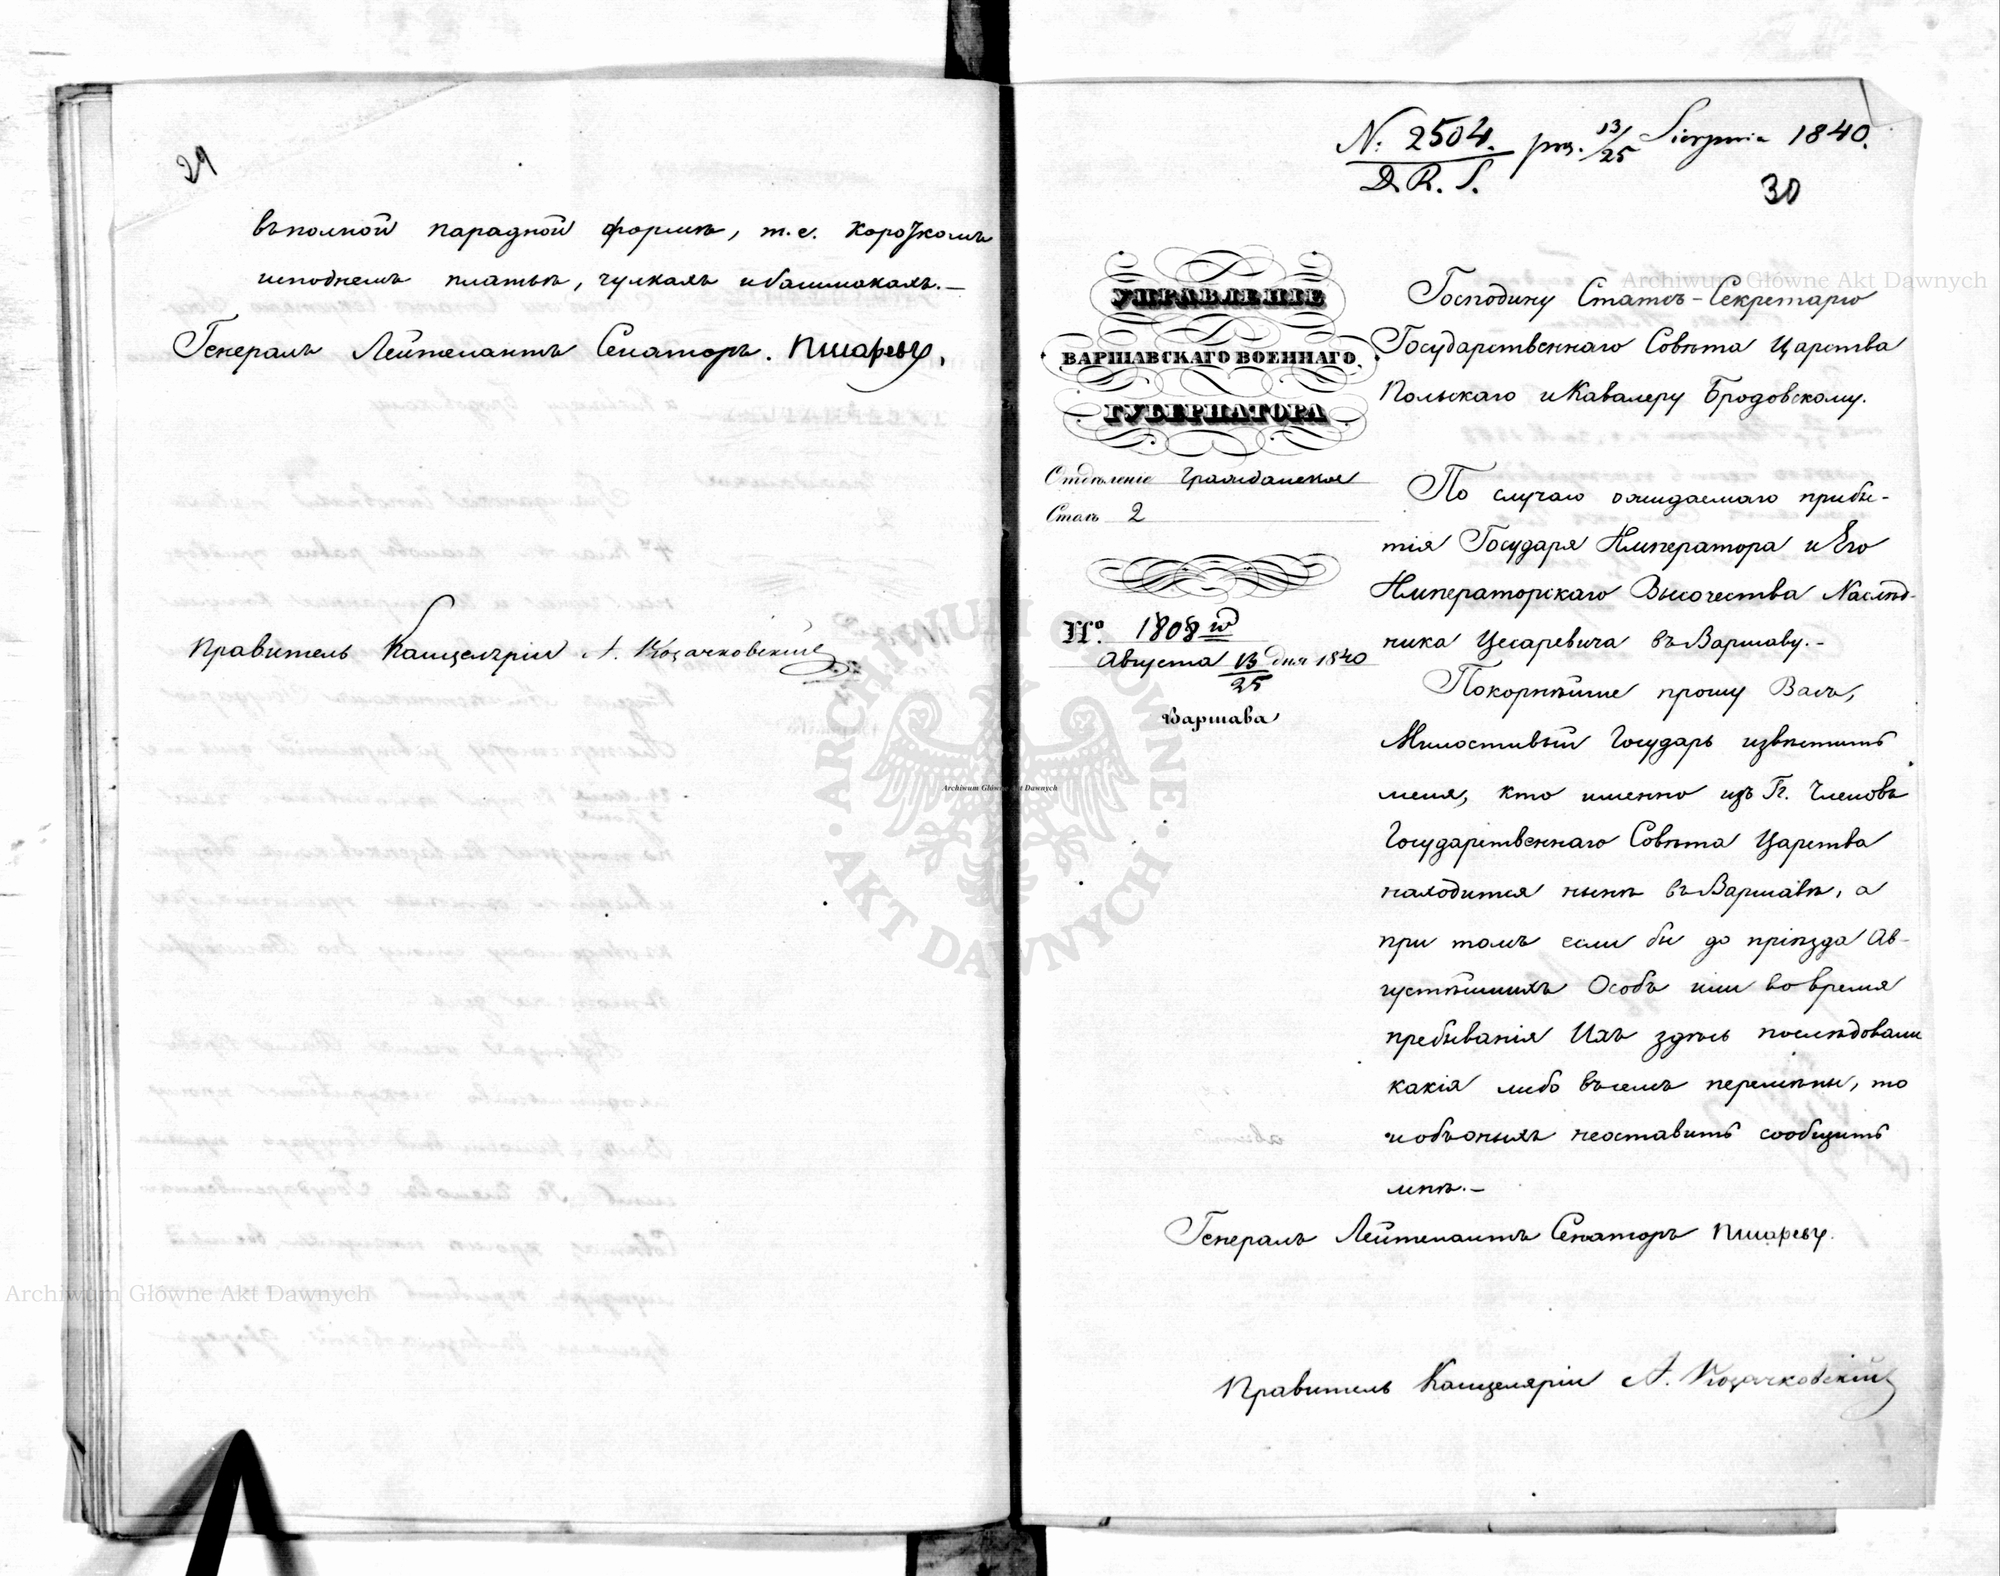 29
въ полной парадной формѣ, т. е. короткомъ
исподнемъ платьѣ, чулкахъ и башмакахъ.—
Генералъ Лейтенантъ Сенаторъ. Писаревъ.
Правитель Канцеляріи А. Козачковскій
N: 2504. prz. 13/25 Sierpnia 1840.
D. R. S.
30
УПРАВЛЕНІЕ
ВАРШАВСКАГО ВОЕННАГО
ГУБЕРНАТОРА
Отдѣленіе Гражданское
Столъ 2
№. 1808
Августа 13/25 дня 1840
Варшава
Господину Статсъ-Секретарю
Государственнаго Совѣта Царства
Польскаго и Кавалеру Бродовскому.
По случаю ожидаемаго прибы-
тія Государя Императора и Его
Императорскаго Высочества Наслѣд-
ника Цесаревича въ Варшаву.—
Покорнѣйше прошу Васъ,
Милостивый Государь извѣстить
меня, кто именно изъ Гг. Членовъ
Государственнаго Совѣта Царства
находится нынѣ въ Варшавѣ, а
при томъ если бы до пріѣзда Ав-
густѣйшихъ Особъ или во время
пребыванія Ихъ здѣсь послѣдовали
какія либо въ семъ перемѣны, то
и объ оныхъ не оставить сообщить
мнѣ.—
Генералъ Лейтенантъ Сенаторъ Писаревъ.
Правитель Канцеляріи А. Козачковскій
Archiwum Główne Akt Dawnych
Archiwum Główne Akt Dawnych
Archiwum Główne Akt Dawnych
ARCHIWUM GŁÓWNE · AKT DAWNYCH ·